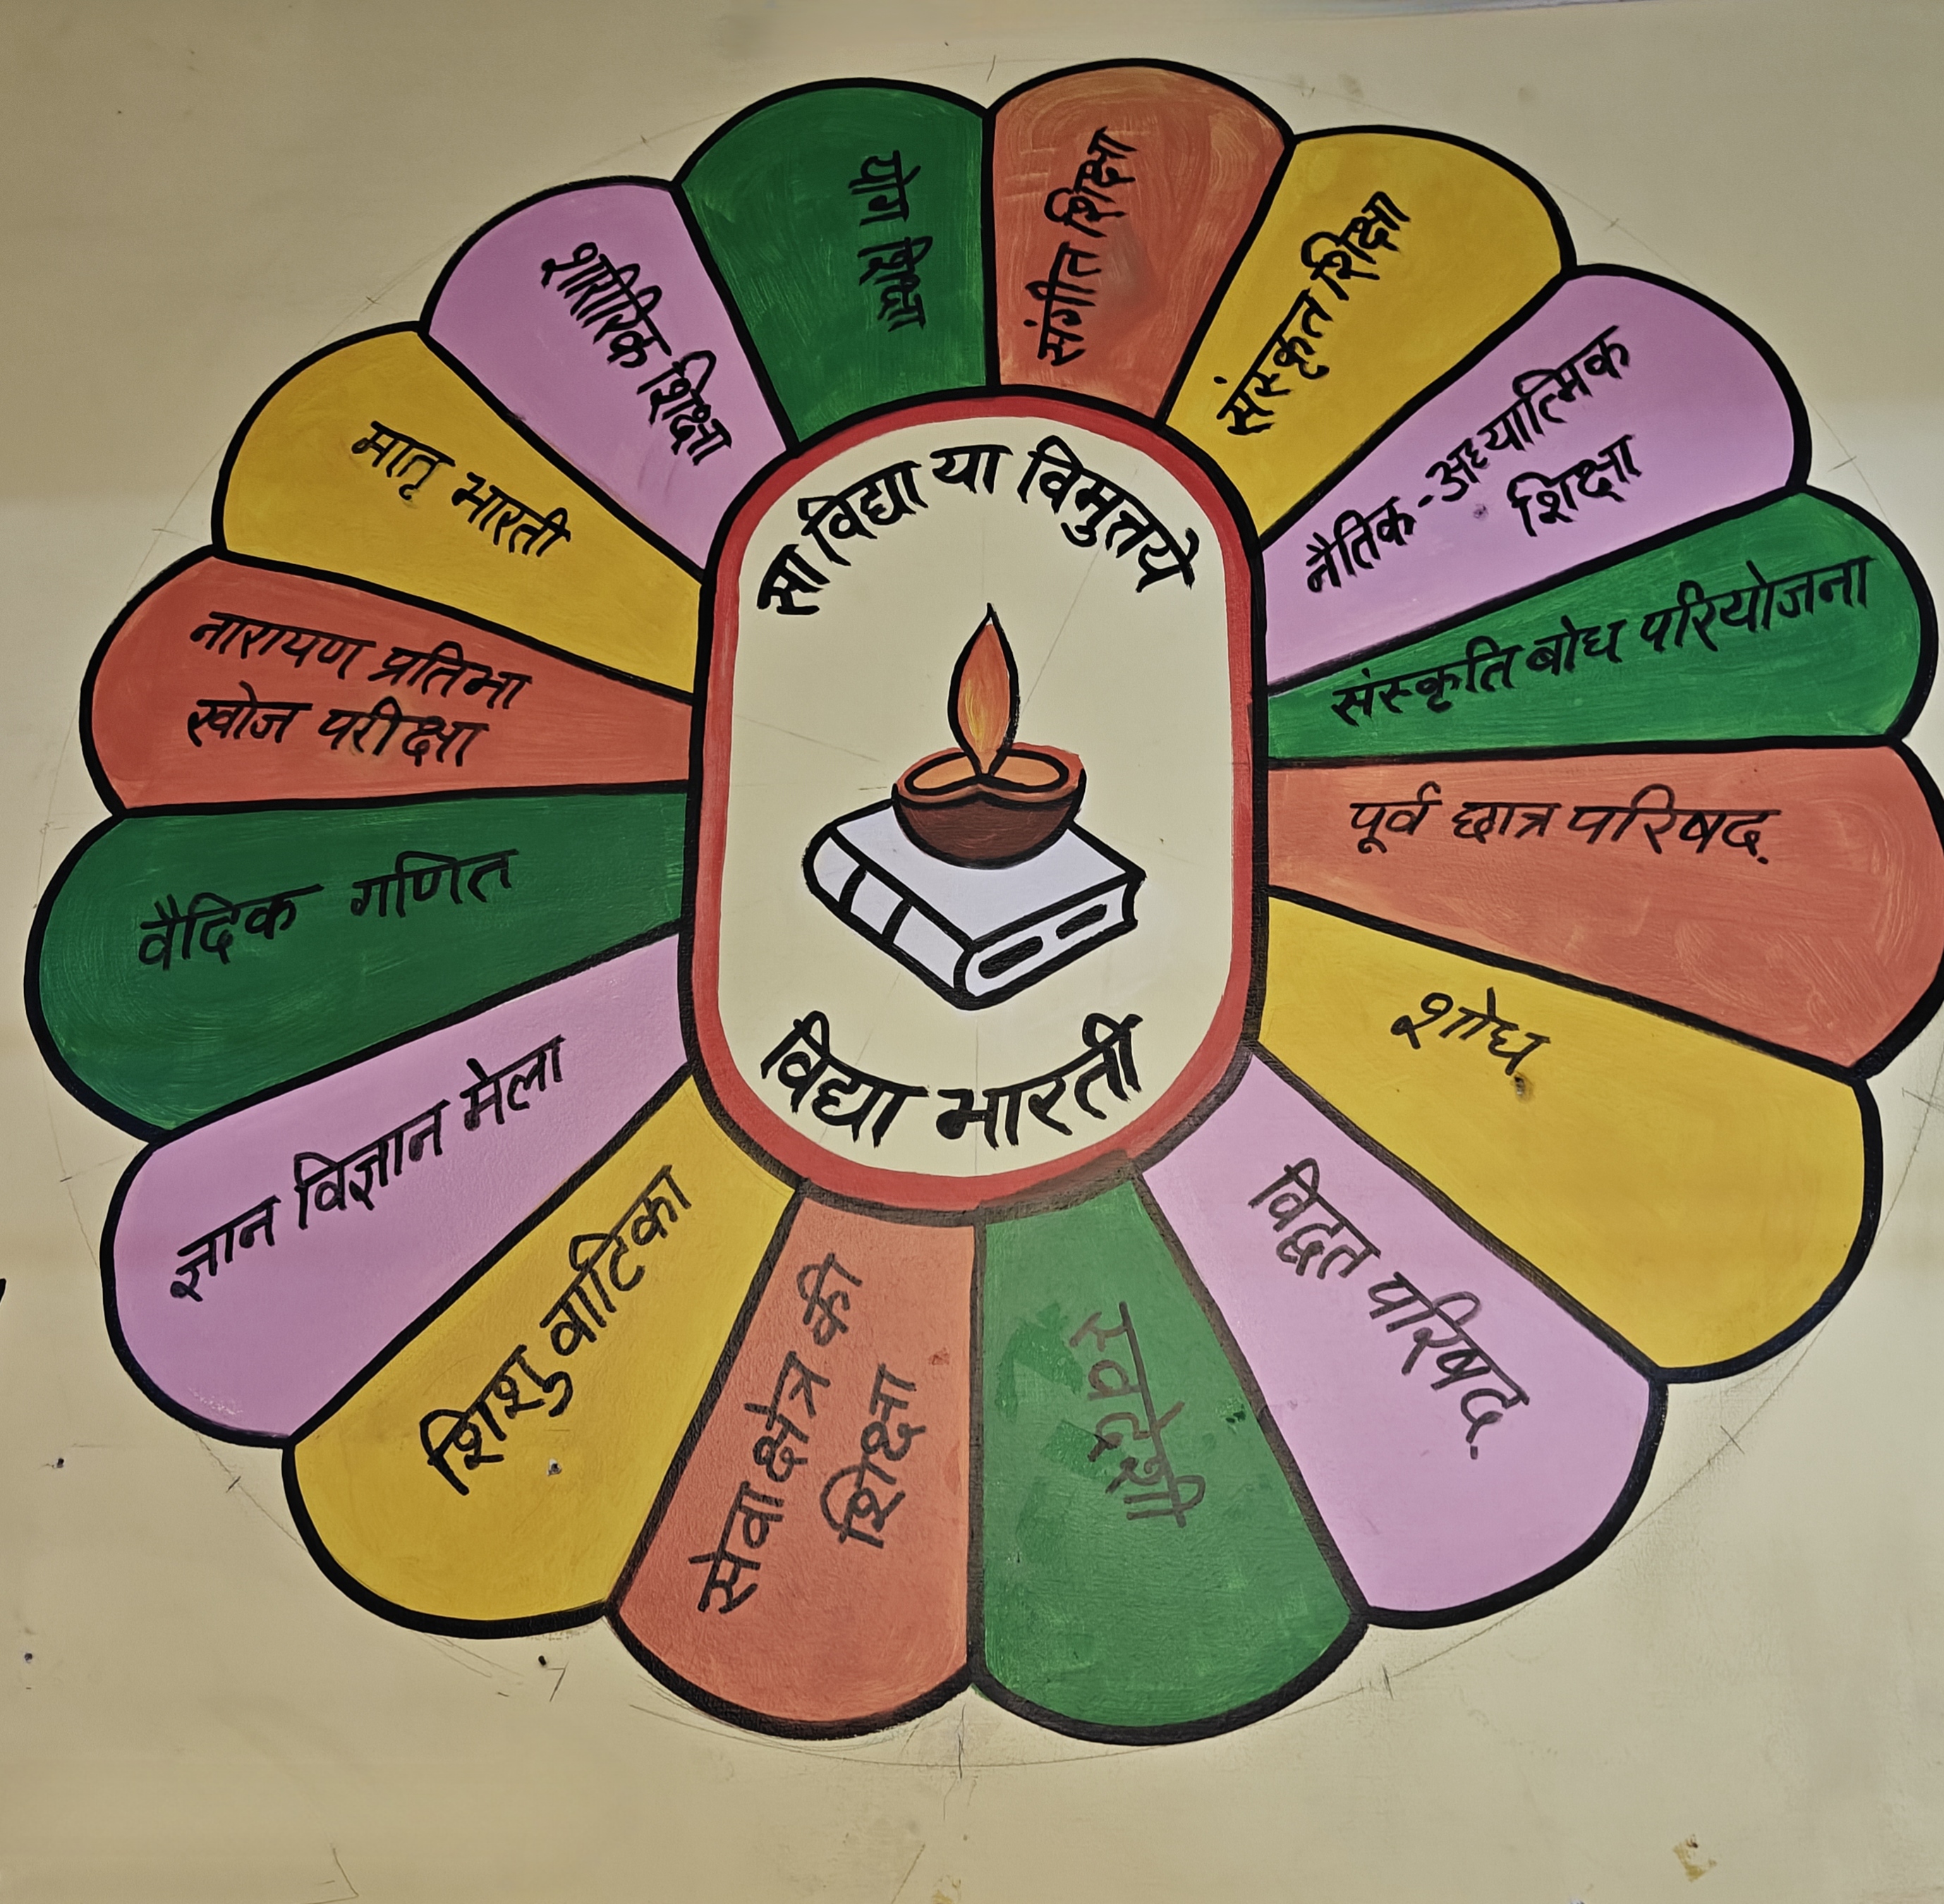 सा विद्या या विमुक्तये
विद्या भारती
संगीत शिक्षा
संस्कृत शिक्षा
नैतिक-अध्यात्मिक
शिक्षा
संस्कृति बोध परियोजना
पूर्व छात्र परिषद्
शोध
विद्वत परिषद्
स्वदेशी
सेवाक्षेत्र की
शिक्षा
शिशु वाटिका
ज्ञान विज्ञान मेला
वैदिक गणित
नारायण प्रतिभा
खोज परीक्षा
मातृ भारती
शारीरिक शिक्षा
योग शिक्षा